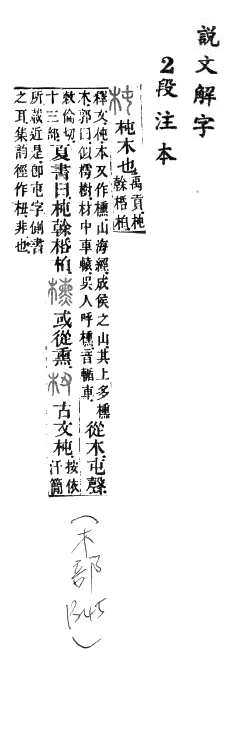 說文解字
2段注本
杶木也禹貢杶
榦栝柏
釋文杶木又作櫄山海經成侯之山其上多櫄
木郭曰似樗樹材中車轅吳人呼櫄音輴車從木屯聲
敕倫切
十三部夏書曰杶榦栝柏 或從熏 古文杶按依
汗簡
所載近是即屯字側書
之耳集韵徑作杻非也
(木部)